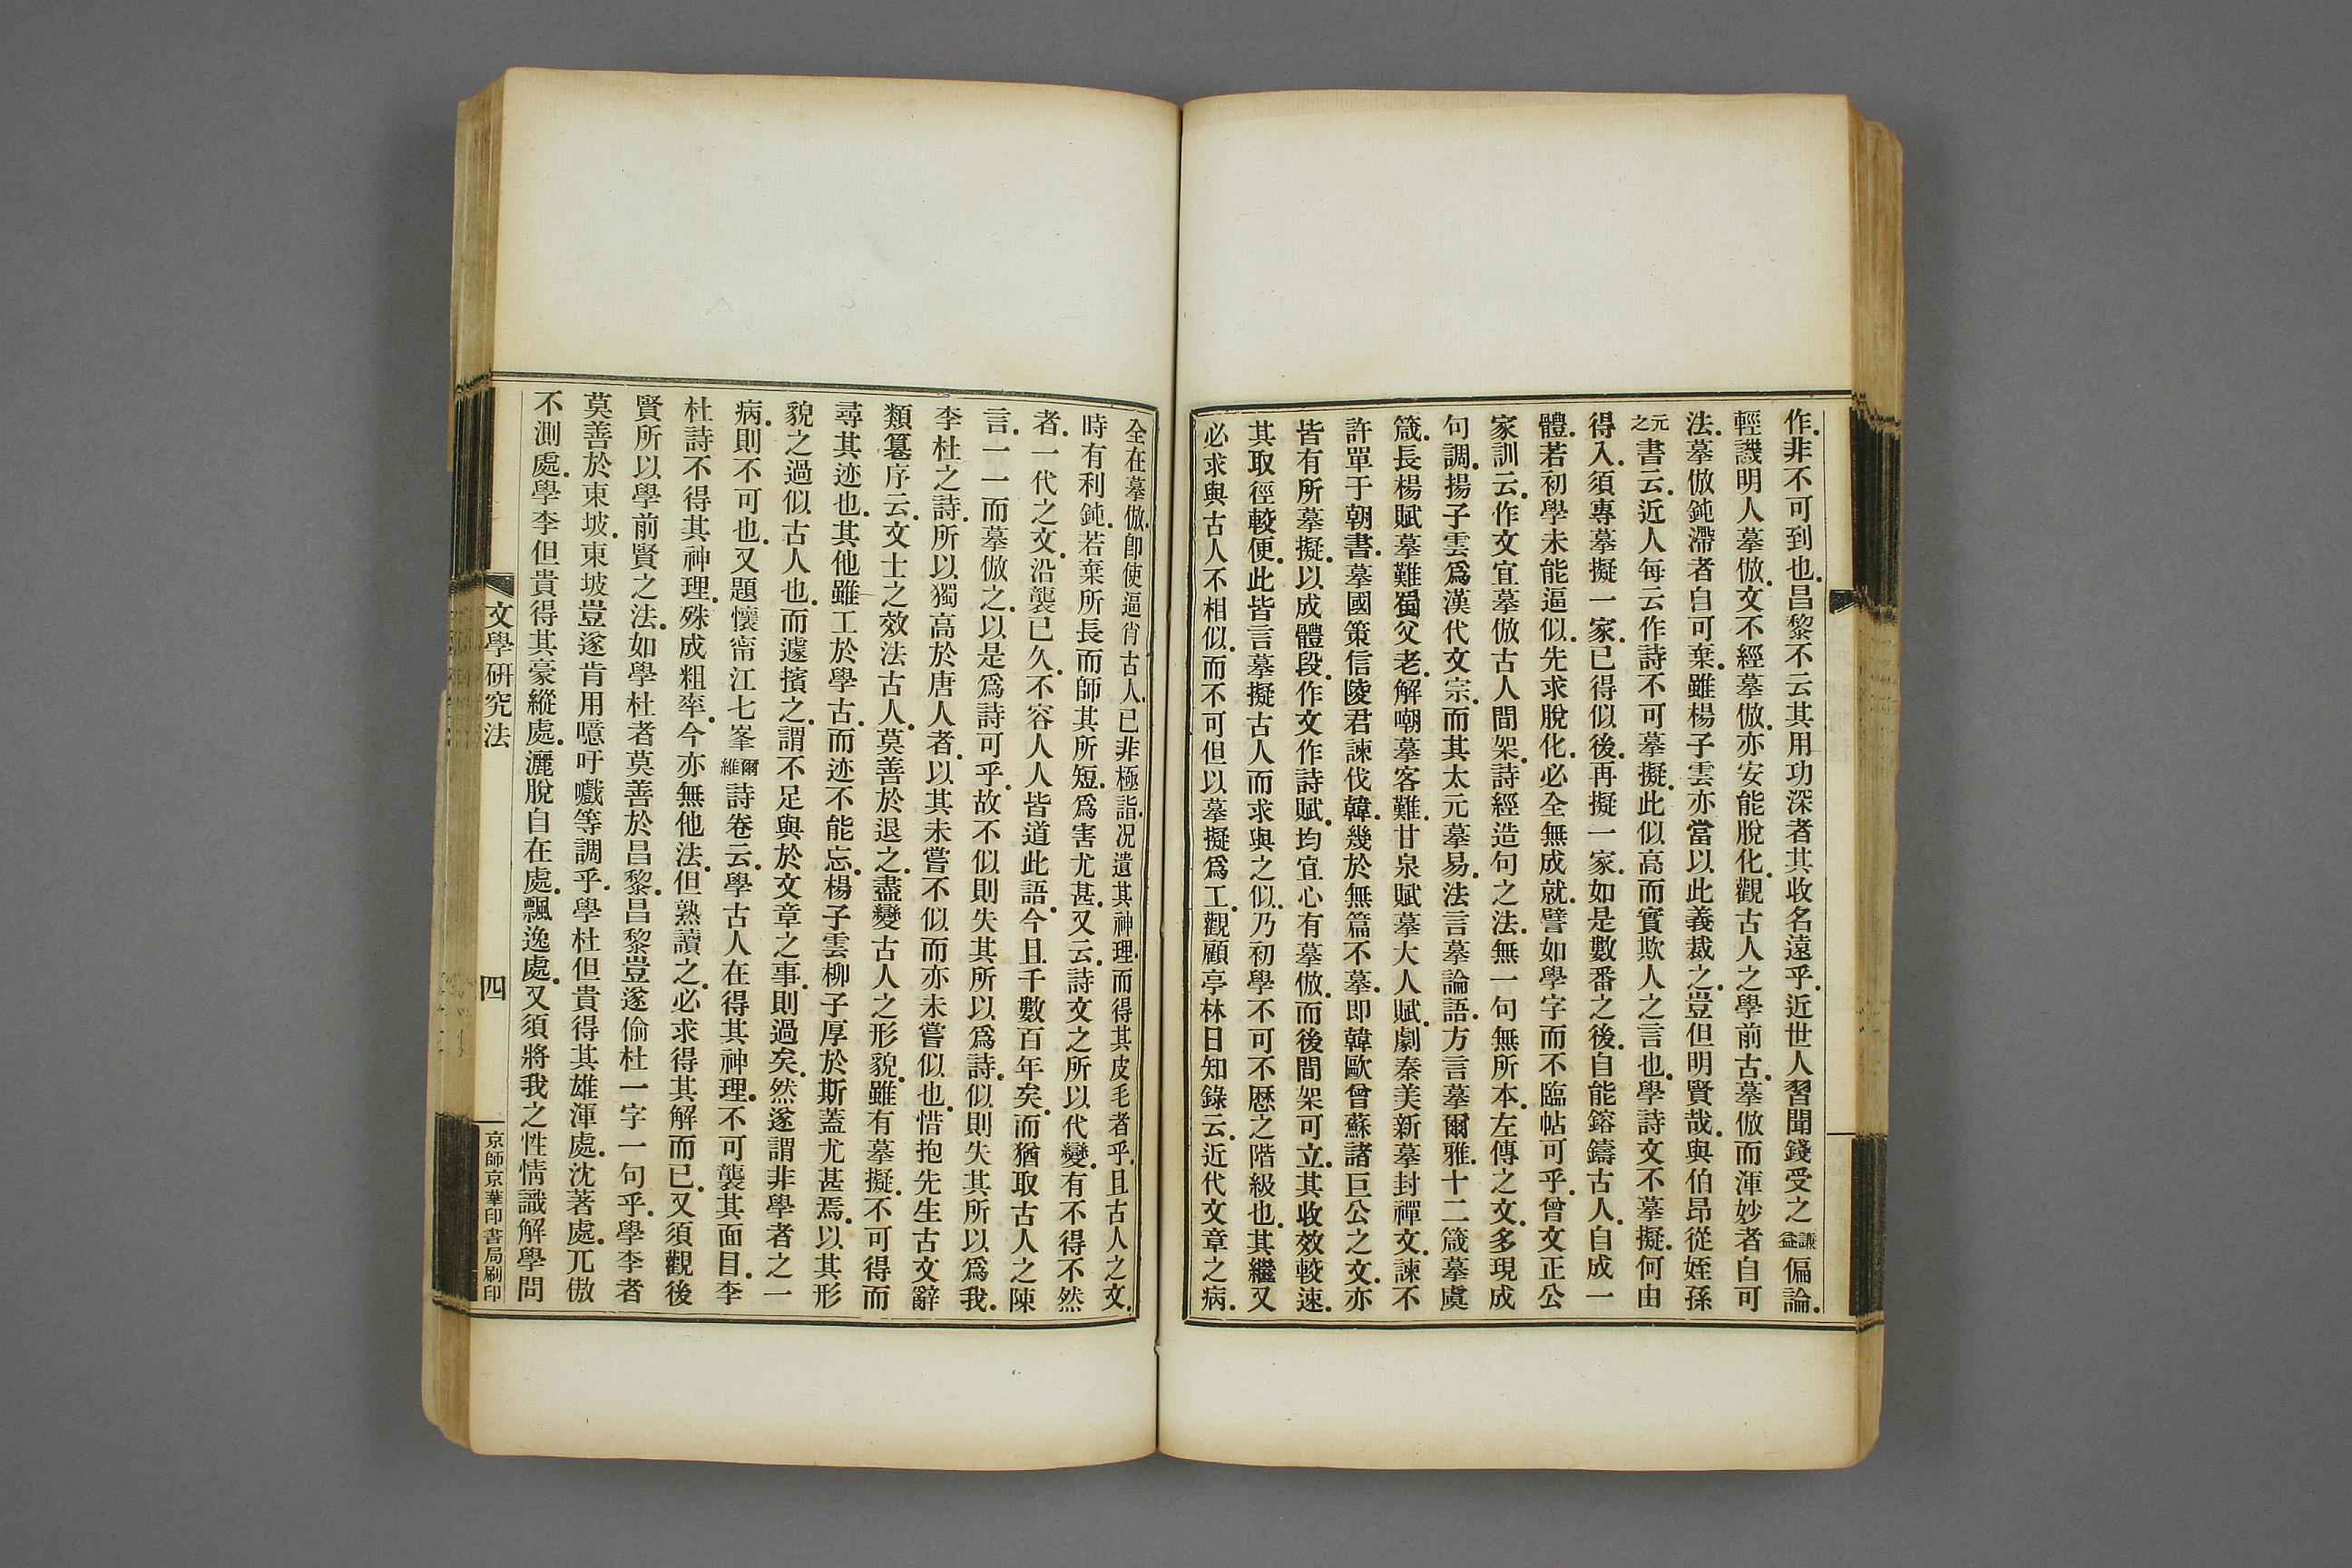 作.非不可到也.昌黎不云其用功深者其收名遠乎.近世人習聞錢受之謙益偏論.
輕譏明人摹倣.文不經摹倣.亦安能脫化.觀古人之學前古.摹倣而渾妙者自可
法.摹倣鈍滯者自可棄.雖楊子雲亦當以此義裁之.豈但明賢哉.與伯昂從姪孫
元之書云.近人每云作詩不可摹擬.此似高而實欺人之言也.學詩文不摹擬.何由
得入.須專摹擬一家.已得似後.再擬一家.如是數番之後.自能鎔鑄古人.自成一
體.若初學未能逼似.先求脫化.必全無成就.譬如學字而不臨帖可乎.曾文正公
家訓云.作文宜摹倣古人間架.詩經造句之法.無一句無所本.左傳之文.多現成
句調.揚子雲爲漢代文宗.而其太元摹易.法言摹論語.方言摹爾雅.十二箴摹虞
箴.長楊賦摹難蜀父老.解嘲摹客難.甘泉賦摹大人賦.劇秦美新摹封禪文.諫不
許單于朝書.摹國策信陵君諫伐韓.幾於無篇不摹.即韓歐曾蘇諸巨公之文.亦
皆有所摹擬.以成體段.作文作詩賦.均宜心有摹倣.而後間架可立.其收效較速.
其取徑較便.此皆言摹擬古人而求與之似.乃初學不可不歷之階級也.其繼又
必求與古人不相似.而不可但以摹擬爲工.觀顧亭林日知錄云.近代文章之病.
全在摹倣.卽使逼肖古人.已非極詣.况遺其神理.而得其皮毛者乎.且古人之文.
時有利鈍.若棄所長而師其所短.爲害尤甚.又云.詩文之所以代變.有不得不然
者.一代之文.沿襲已久.不容人人皆道此語.今且千數百年矣.而猶取古人之陳
言.一一而摹倣之.以是爲詩可乎.故不似則失其所以爲詩.似則失其所以爲我.
李杜之詩.所以獨高於唐人者.以其未嘗不似而亦未嘗似也.惜抱先生古文辭
類篹序云.文士之效法古人.莫善於退之.盡變古人之形貌.雖有摹擬.不可得而
尋其迹也.其他雖工於學古.而迹不能忘.楊子雲柳子厚於斯蓋尤甚焉.以其形
貌之過似古人也.而遽擯之.謂不足與於文章之事.則過矣.然遂謂非學者之一
病.則不可也.又題懷甯江七峯爾維詩卷云.學古人在得其神理.不可襲其面目.李
杜詩不得其神理.殊成粗率.今亦無他法.但熟讀之.必求得其解而已.又須觀後
賢所以學前賢之法.如學杜者莫善於昌黎.昌黎豈遂偷杜一字一句乎.學李者
莫善於東坡.東坡豈遂肯用噫吁嚱等調乎.學杜但貴得其雄渾處.沈著處.兀傲
不測處.學李但貴得其豪縱處.灑脫自在處.飄逸處.又須將我之性情識解學問
文學研究法
四
京師京華印書局刷印